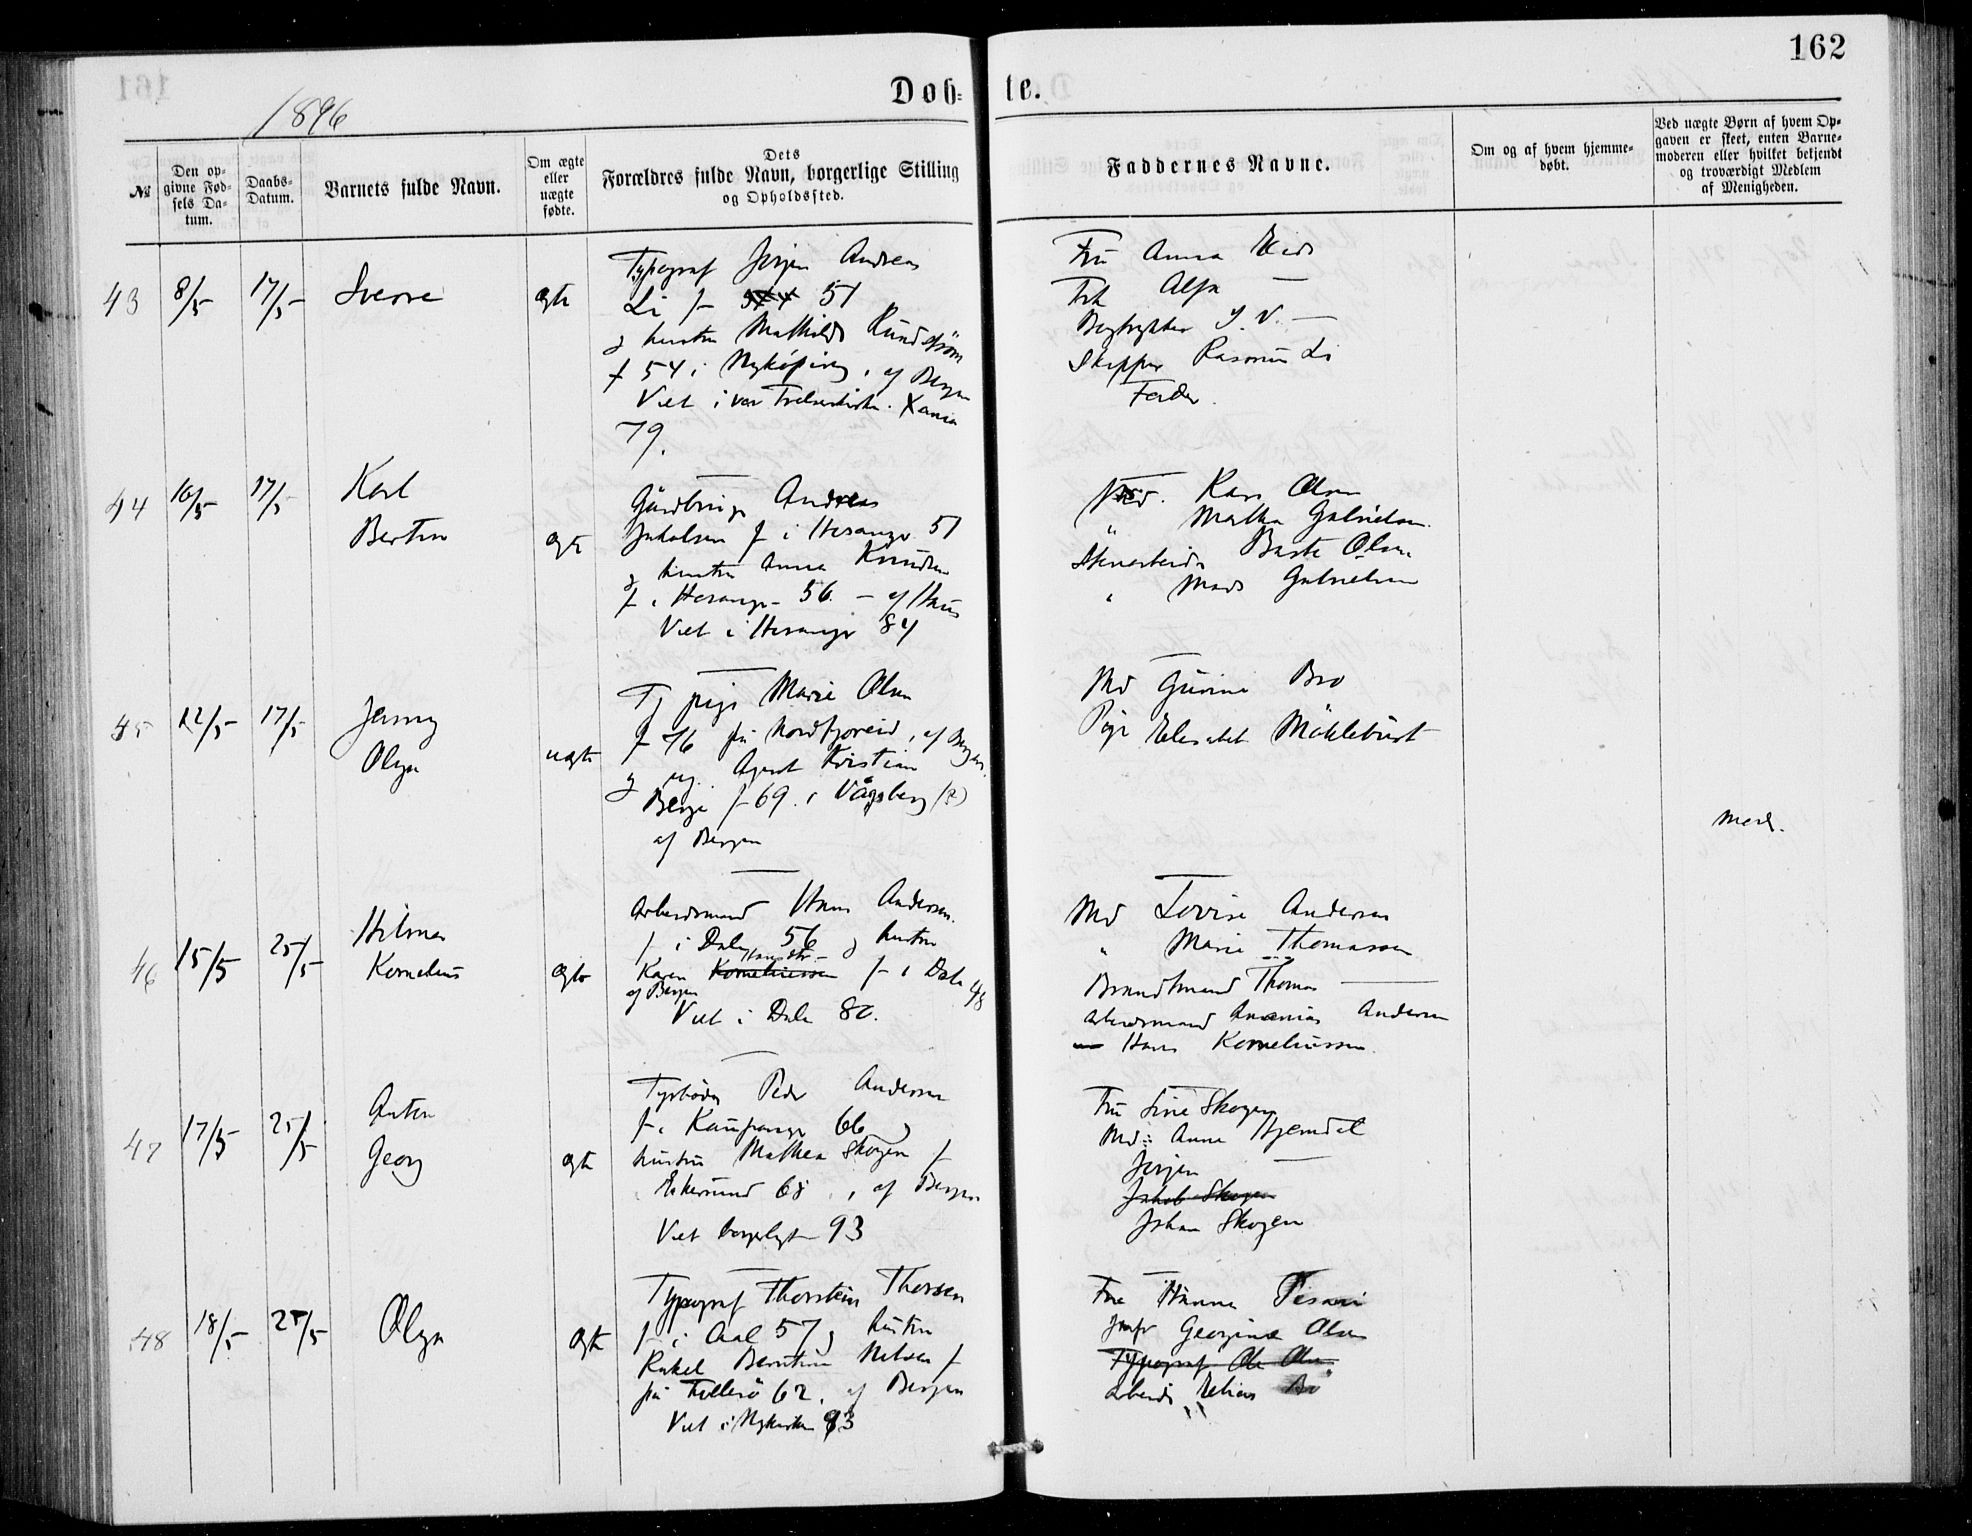 162
Døb=
te.
1896
№
Den op-
givne Fød-
sels Da-
tum.
Daabs-
Datum.
Barnets fulde Navn.
Om ægte
eller
uægte
fødte.
Dets
Forældres fulde Navn, borgerlige Stilling
og Opholdssted.
Faddernes Navne.
Om og af hvem hjemme-
døbt.
Ved uægte Børn af hvem Op-
gaven er skeet, enten Barne-
moderen eller hvilket bekjendt
og troværdigt Medlem
af Menigheden.
43 8/5 17/5 Sverre ægte
Typograf Jørgen Andreas
Li f 51
g hustru Mathilde
f 54 i Nykøping, af Bergen
Viet i vor Frelserkirke Xania
79.
Fru Anna
Frk Alfa —
Bogtrykker J. V. —
Skipper Rasmus Li
Fader.
44 16/5 17/5 Karl
Bertin ægte
Andreas
Jakobsen f i Hosanger 51
g hustru Anna Knudsen
f i Hosanger 56 – af Haus
Viet i Hosanger 84
Md. Kari Olsen
" Martha Gabrielsen
Stenarbeider Olsen
" Mads Gabrielsen
45 12/5 17/5 Jenny
Olga uægte
Tj pige Marie Olsen
f 76 på Nordfjoreid, af Bergen
g ug. Agent Kristian
Berge f 69 i Vågsberg (?)
af Bergen
Md Gurine Bro
Pige Elisabet Möklebust
Mod.
46 15/5 25/5 Hilmar
Kornelius ægte
Arbeidsmand Hans Andersen
f i Dale 56 g hustru
Karen Korneliussen f i Dale 48
af Bergen
Viet i Dale 80.
Md Lovise Andersen
" Marie Thomassen
Brandmand Thomas —
Arbeidsmand Ananias Andersen
— Hans Korneliussen
47 17/5 25/5 Anton
Georg ægte
Fyrbøder Peder Andersen
f i Kaupanger 66 g
hustru Mathea Skogen f
Ekersund 68, af Bergen
Viet borgerligt 93
Fru Sine Skogen
Md: Anna Hjemdal
Jørgen —
Jakob Skogen
Johan Skogen
48 18/5 25/5 Olga ægte
Typograf Thorstein Thorsen
f i Aal 57 g hustru
Rakel Berntine Nilsen f
på Tellesø 62. af Bergen
Viet i Nykirken 83
Fru Hanna
Jmfr Georgine Olsen
Typograf Ole Olsen
Arbeids Elias Bø